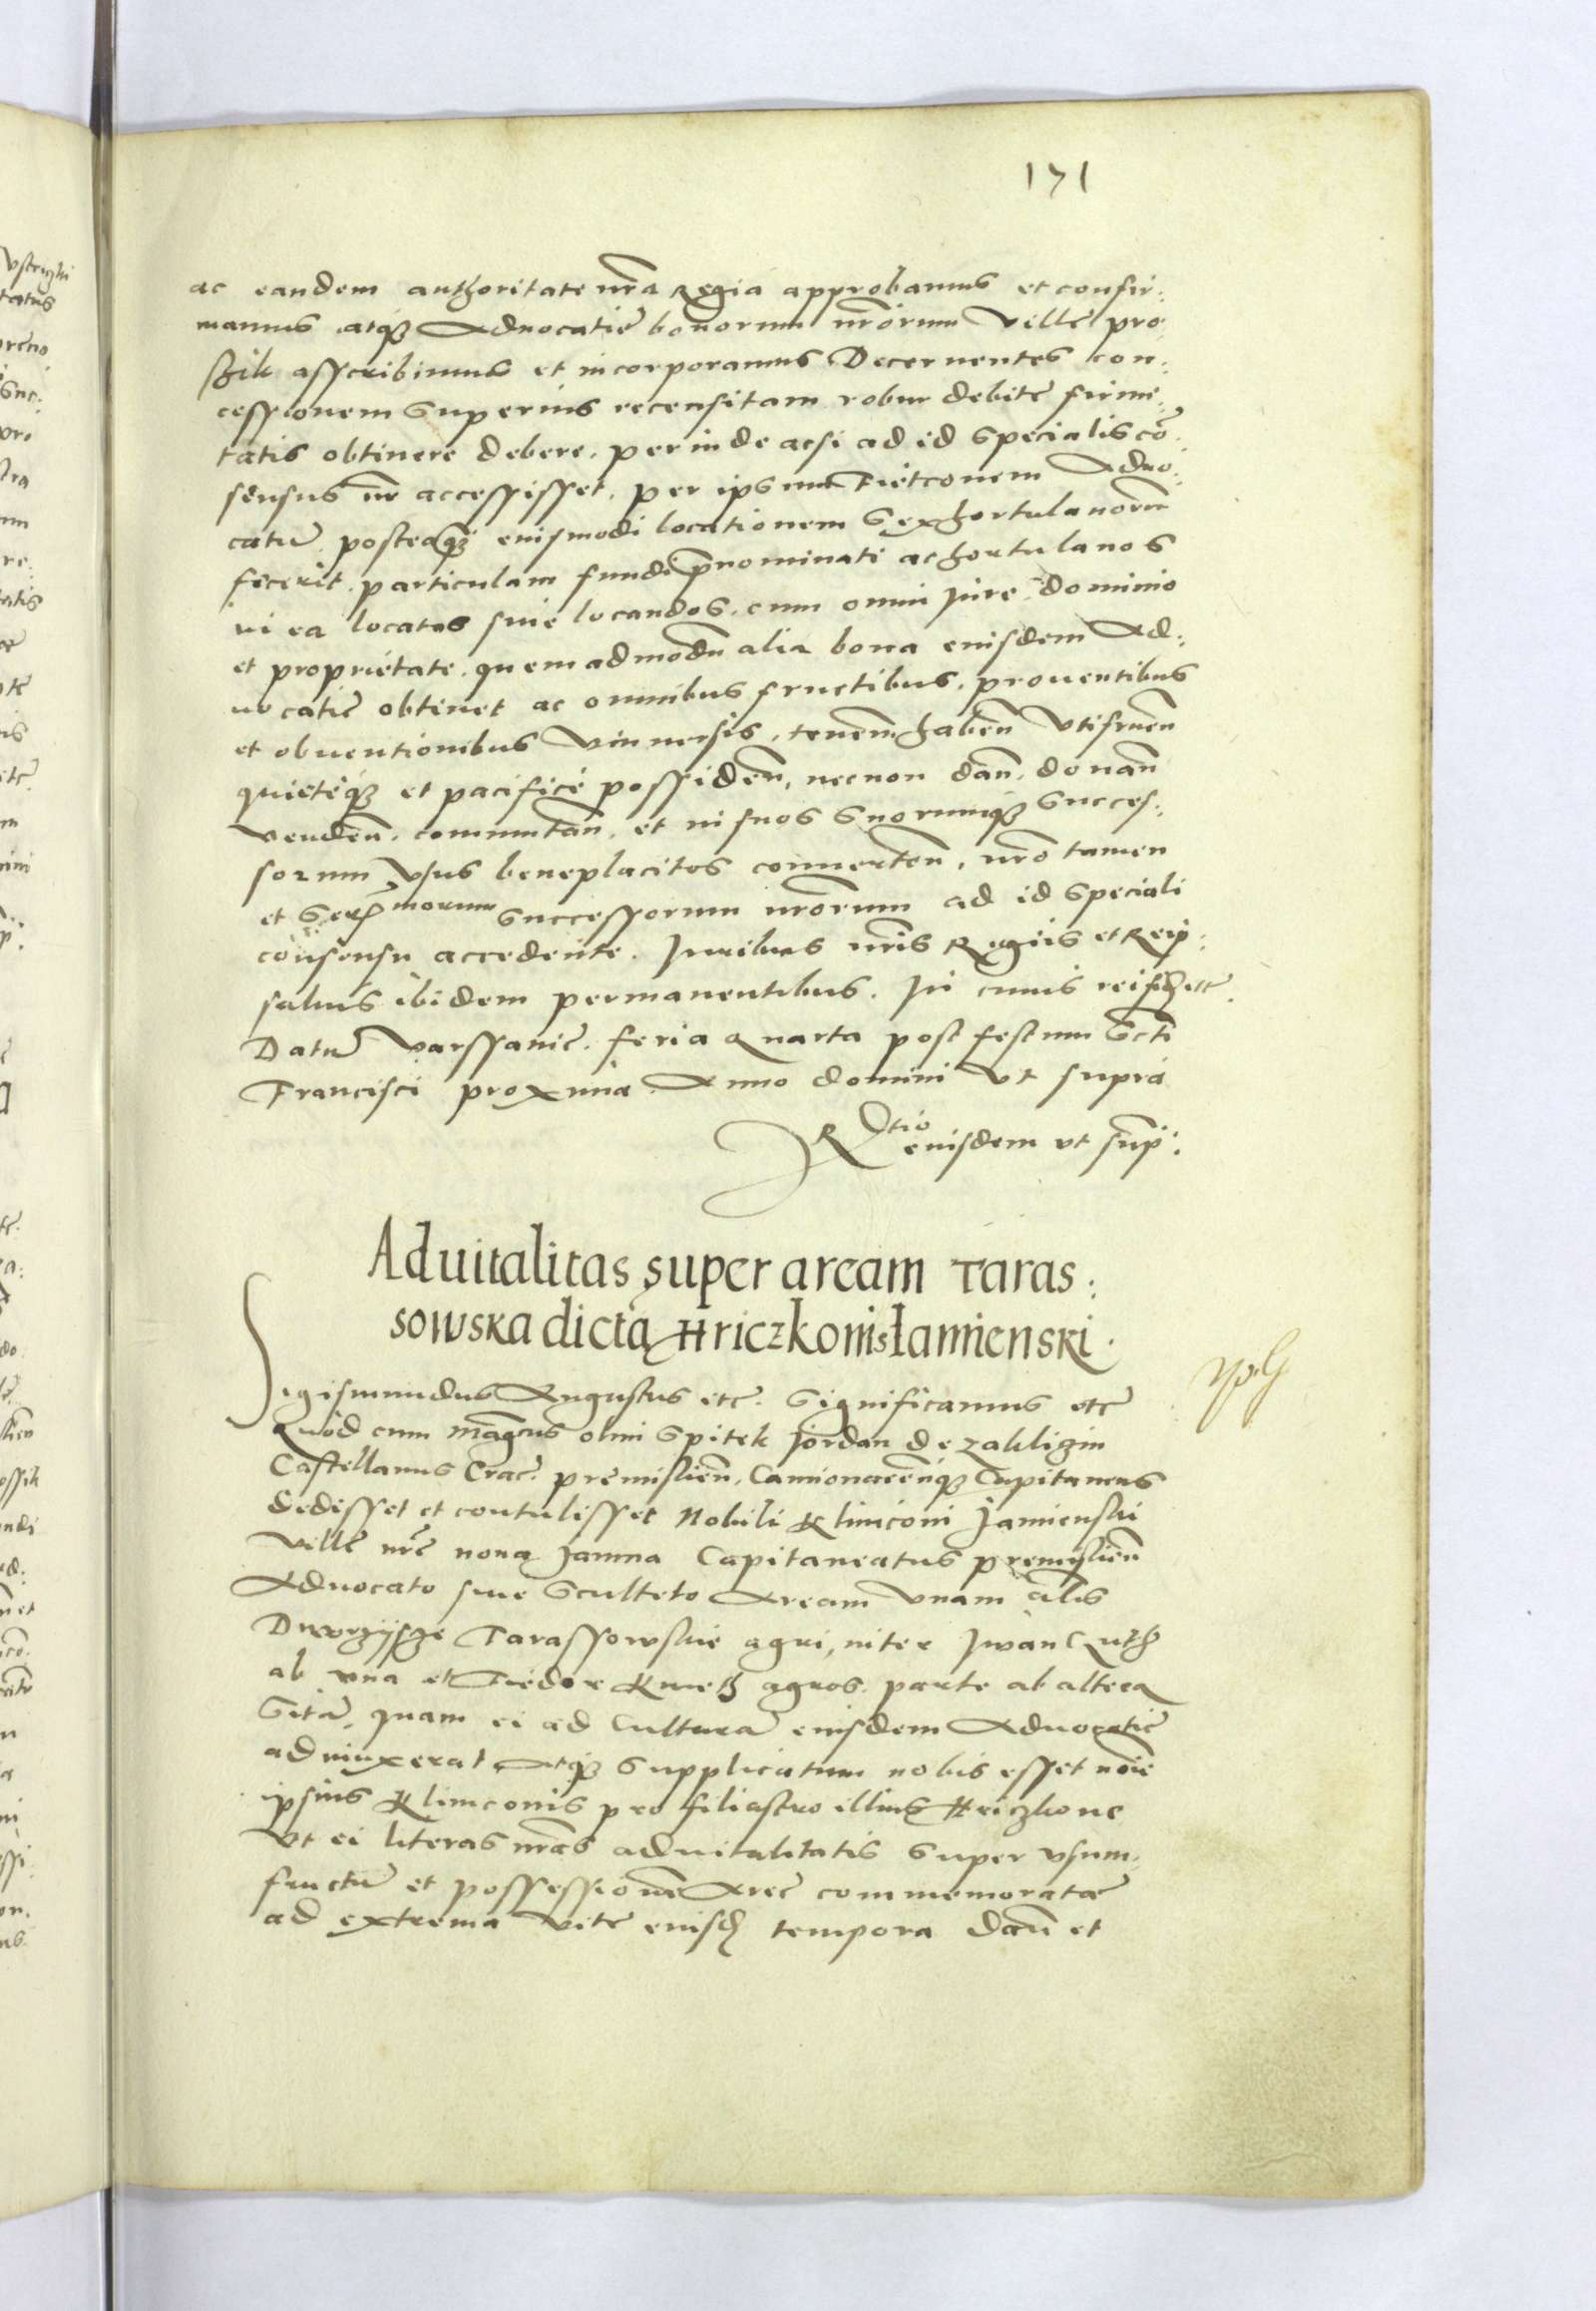 171
ac eandem authoritate nr̃a Regia approbamus et confir:
mamus atqꝫ Aduocatie bonorum nr̃orum Ville pro
szik asscribimus et incorporamus Decernentes con:
cessionem superius recensitam robur debite firmi:
tatis obtinere debere. perinde acsi ad id specialis cõ:
sensus nr̃ accessisset. per ipsum Fietconem Aduo:
catũ posteaqꝫ eiusmodi locationem sex hortulanorũ
fecerit. particulam fundi p̃nominati ac hortulanos
in ea locatos siue locandos. cum omni jure dominio
et proprietate. quemadmodũ alia bona eiusdem Ad:
uocatie obtinet ac omnibus fructibus. prouentibus
et obuentionibus Vniuersis, tenen̄ haben̄ Vtifruen̄
quieteqꝫ et pacifice possiden̄, necnon dan̄. donan̄
Venden̄. commutan̄. et in suos suorumqꝫ succes:
sorum Vsus beneplacitos conuerten̄, nr̃o tamen
et Ser morum successorum nr̃orum ad id speciali
consensu accedente. Juribus nr̃is Regiis et Reip:
saluis ibidem permanentibus. In cuius rei fid etc.
Datũ Varssauie. feria quarta post festum Scti
Francisci proxima Anno domini Vt supra
Rtio eiusdem vt sup̃:
Aduitalitas super aream Taras:
sowska dictą Hriczkonis Iamienski.
Sigismundus Augustus etc. Significamus etc
Quod cum Mag̃cus olim Spitek Jordan de zakliczin
Castellanus Crac. premislien̄. Camionaceñqꝫ Capitaneus
dedisset et contulisset Nobili Klimconi Jamienski
Ville nr̃e noua Jamna Capitaneatus premyslien̄
Aduocato siue Sculteto Aream Vnam al̃s
Dworzyscze Tarassowskie agri, inter Jwan
ab vna et Fiedor Kmeth agros parte ab altera
Sitã, quam ei ad Culturã eiusdem Aduocatie
adiunxerat Atqꝫ supplicatum nobis esset noĩe
ipsius Klimconis pro filiastro illius Hriczkone
Vt ei literas nr̃as aduitalitatis super vsum:
fructũ et possessionẽ Aree commemorate
ad extrema Vite eiusd tempora dan̄ et